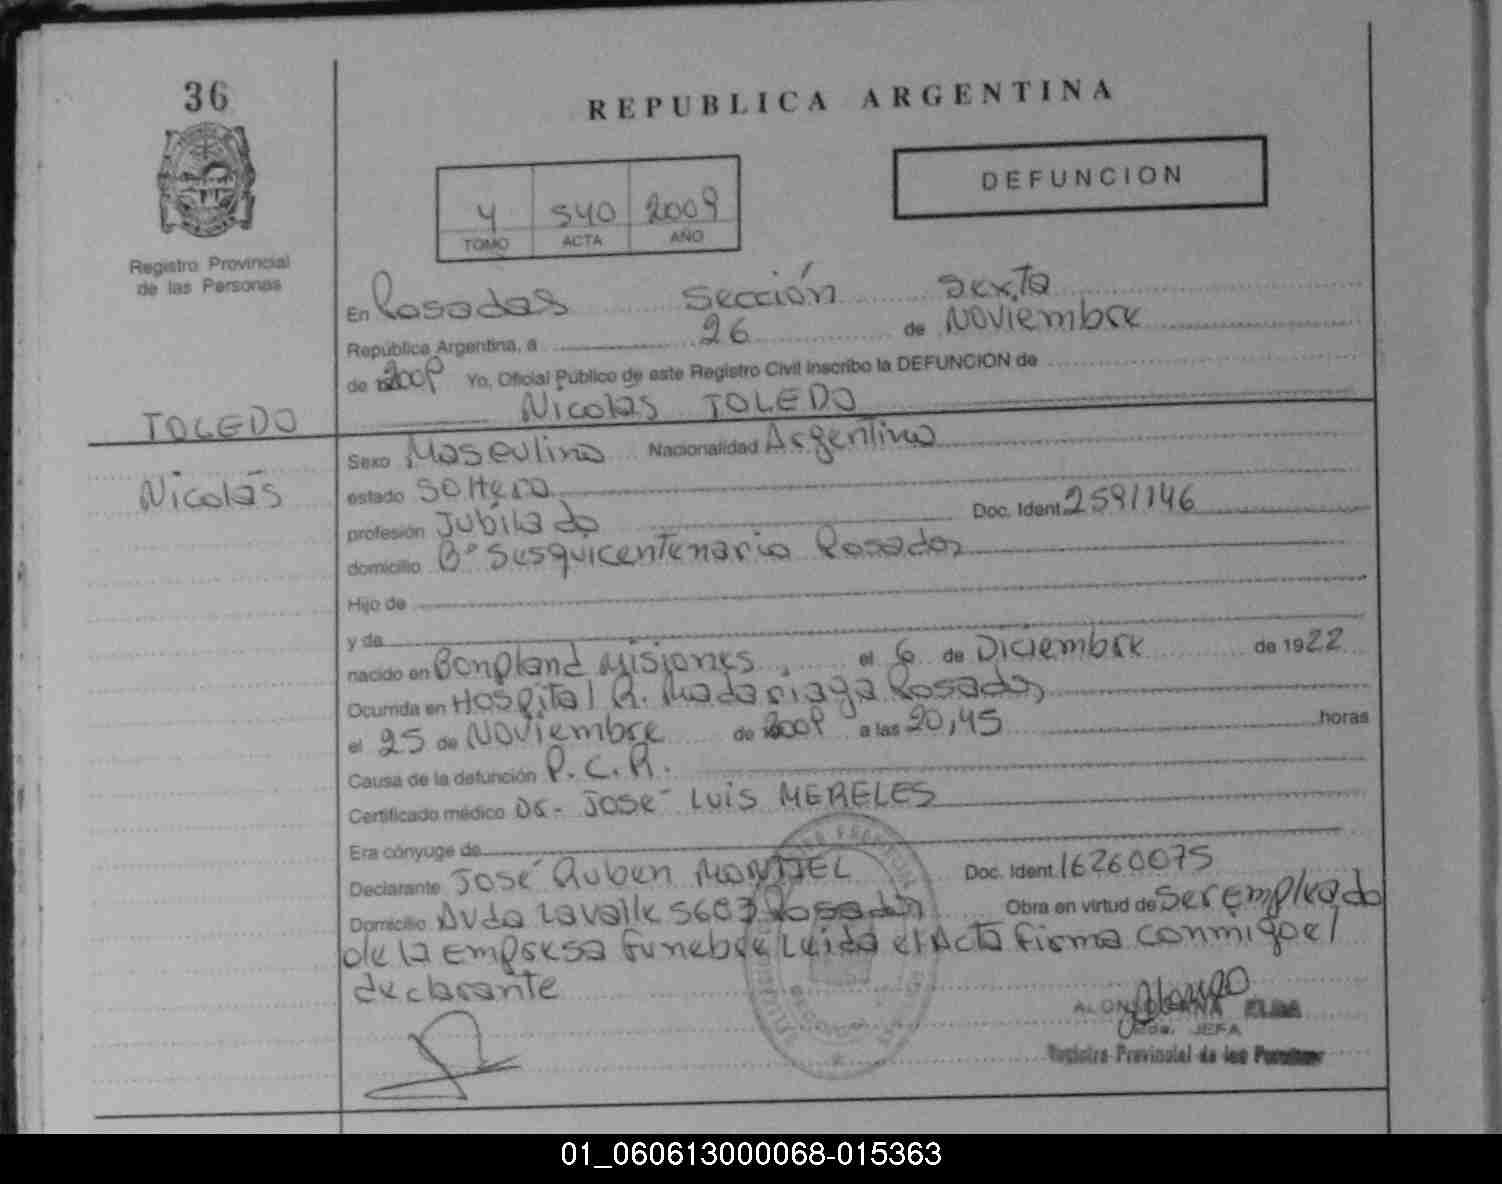 36
REPUBLICA ARGENTINA
DEFUNCION
4 540 2009
TOMO ACTA AÑO
Registro Provincial
de las Personas
En Posadas Sección Sexta
República Argentina, a 26 de Noviembre
de 2009 Yo, Oficial Público de este Registro Civil inscribo la DEFUNCION de
Nicolás TOLEDO
TOLEDO
Nicolás
Sexo Masculino Nacionalidad Argentina
estado Soltero
profesión Jubilado Doc. Ident. 2591146
domicilio Bº Sesquicentenario Posadas
Hijo de
y de
nacido en Bonpland Misiones, el 6 de Diciembre de 1922
Ocurrida en Hospital R. Madariaga Posadas
el 25 de Noviembre de 2009 a las 20,45 horas
Causa de la defunción P.C.R.
Certificado médico Dr- José Luis MERELES
Era cónyuge de
Declarante José Ruben MONTIEL Doc. Ident. 16260075
Domicilio Avda Lavalle 5603 Posadas Obra en virtud de ser empleado
de la Empresa funebre Leida el Acta firma conmigo el
declarante
JEFA
Registro Provincial de las Personas
01_060613000068-015363